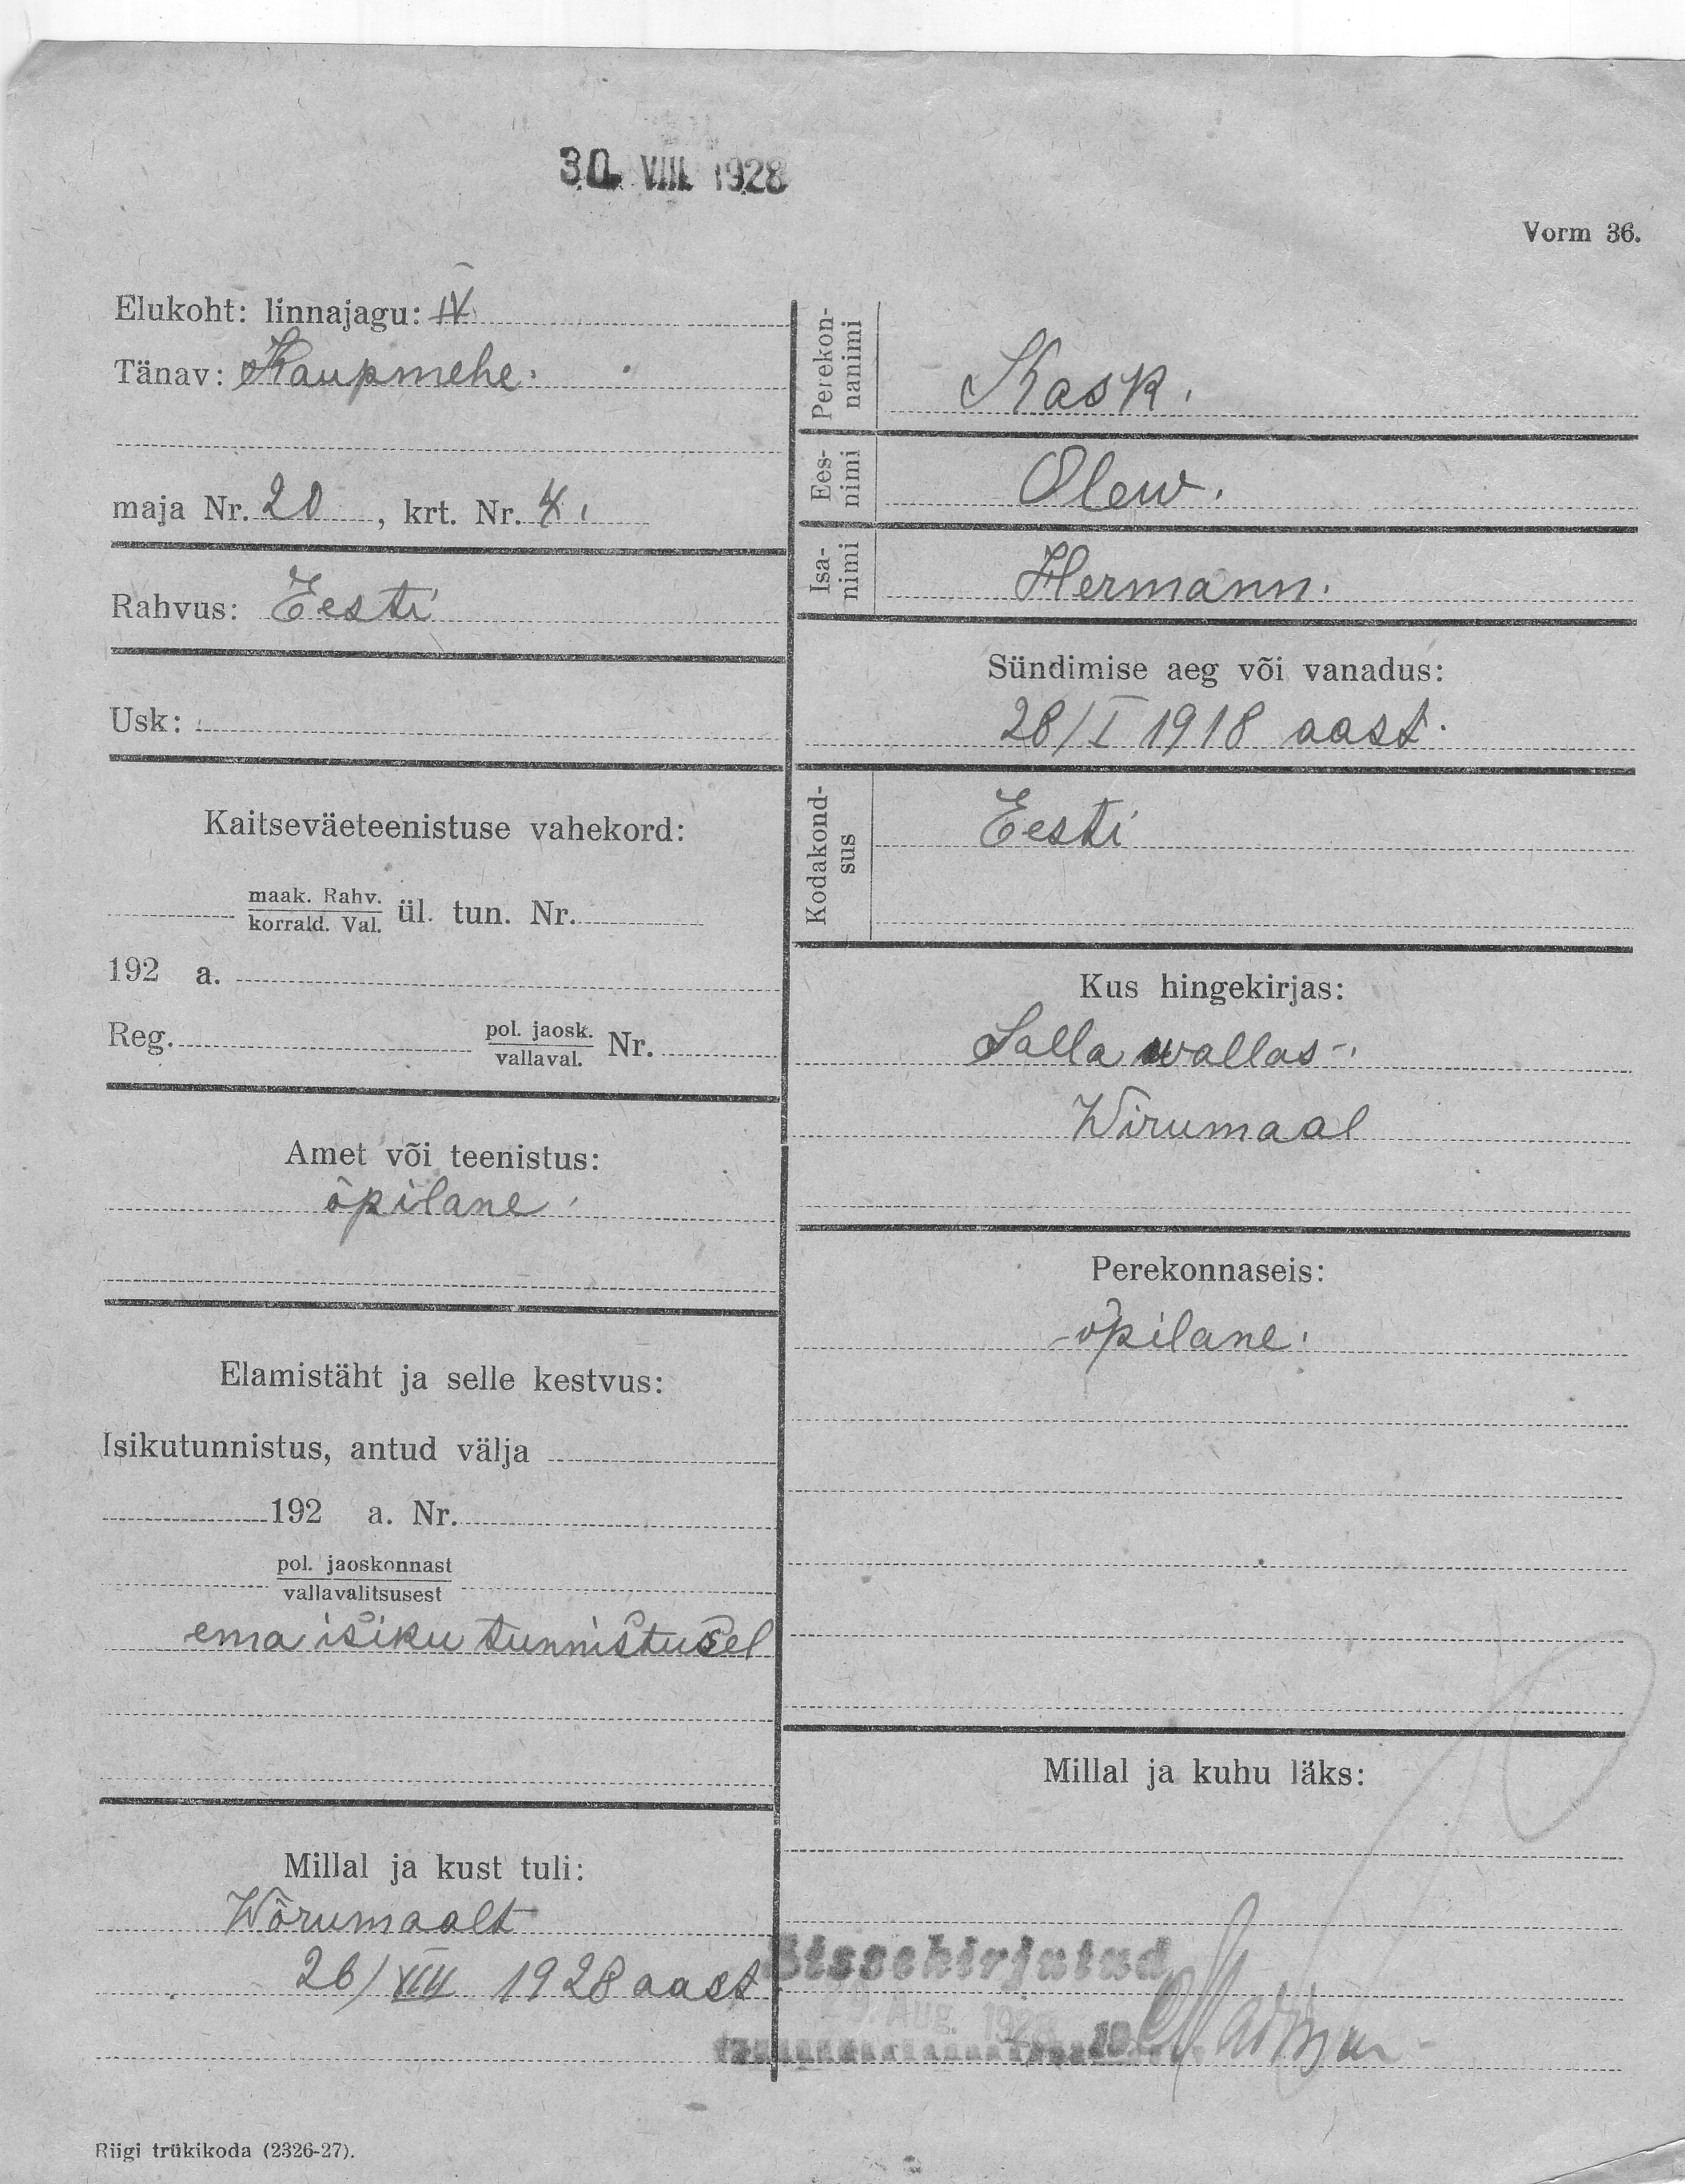 30. VIII. 1928
Vorm 36.
Elukoht: linnajagu: IV
Tänav: Kaupmehe.
maja Nr. 20, krt. Nr. 4.
Rahvus: Eesti
Usk:
Kaitseväeteenistuse vahekord:
maak. Rahv.
korrald. Val. ül. tun. Nr.
192 a.
Reg. pol. jaosk. Nr.
vallaval.
Amet või teenistus:
õpilane.
Elamistäht ja selle kestvus:
Isikutunnistus, antud välja
192 a. Nr.
pol. jaoskonnast
vallavalitsusest
ema isiku tunnistusel
Millal ja kust tuli:
Wõrumaalt
26/VIII 1928 aast
Perekon-
nanimi
Kask.
Ees-
nimi
Olew.
Isa-
nimi
Hermann.
Sündimise aeg või vanadus:
28/I 1918 aast.
Kodakond-
sus
Eesti
Kus hingekirjas:
Salla wallas.
Wirumaal
Perekonnaseis:
õpilane.
Millal ja kuhu läks:
Sissekirjutud
29. Aug. 1928
19
Riigi trükikoda (2326-27).